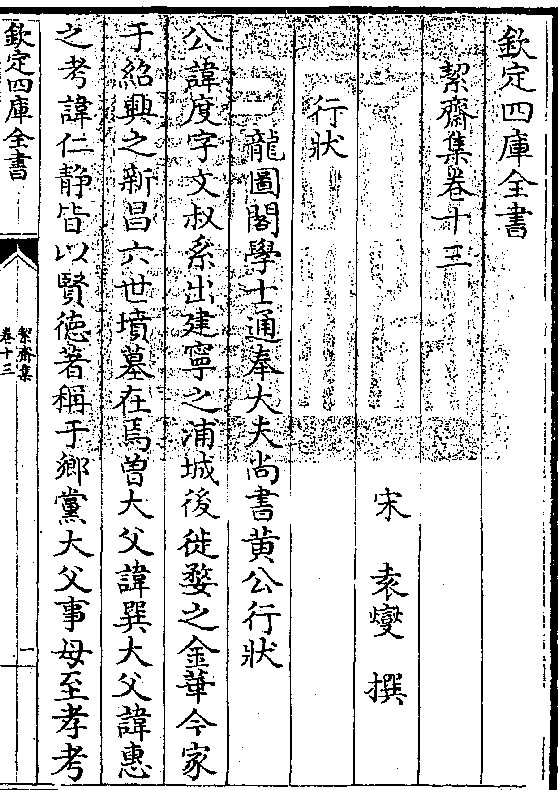 欽定四庫全書
絜齋集卷十三
宋 袁燮 撰
行狀
龍圖閣學士通奉大夫尚書黄公行狀
公諱度字文叔系出建寧之浦城後徙婺之金華今家
于紹興之新昌六世墳墓在焉曾大父諱巽大父諱惠
之考諱仁静皆以賢徳著稱于鄉黨大父事母至孝考
欽定四庫全書
絜齋集
卷十三
一